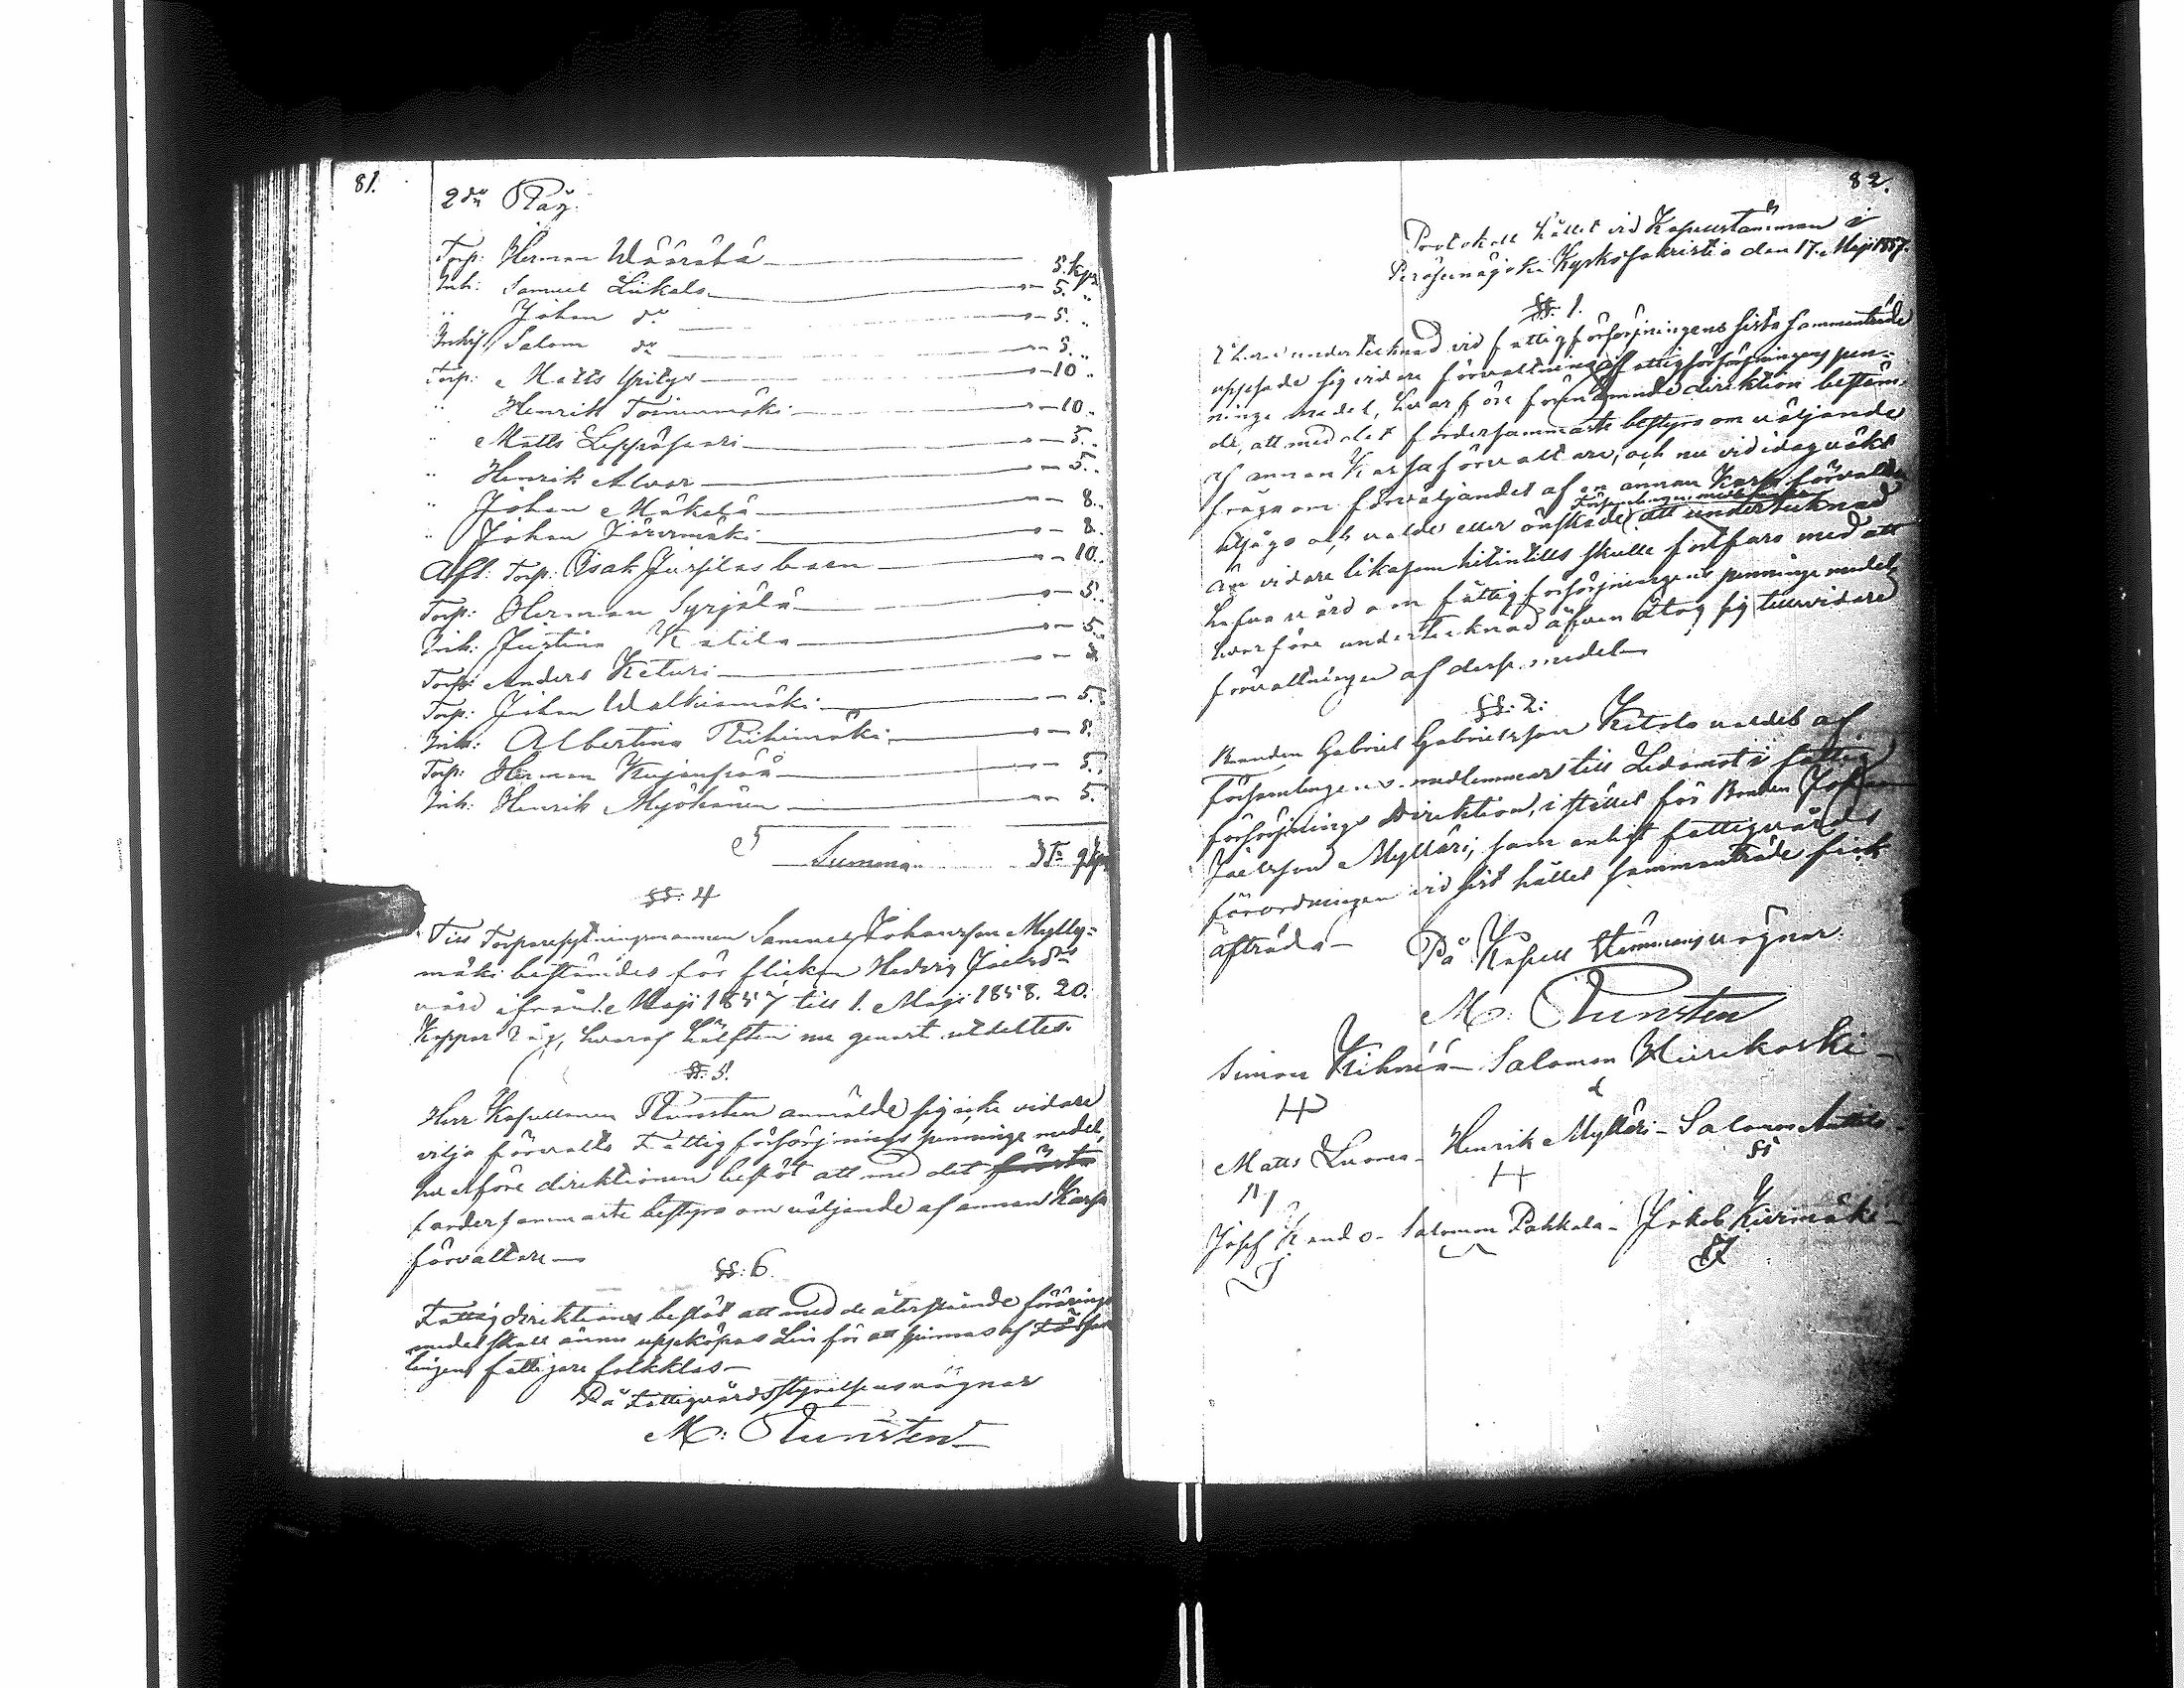 81.
2do Råg.
Torp: Herman Wäärälä 5. kpr
Inh: Samuel Liikala 5. "
" Johan do 5. "
Inhys Salom do 5. "
Torp: Matts Yritys 10 "
" Henrik Toiviomäki 10 "
" Matts Leppäsaari 5. "
" Henrik Alvar 5. "
" Johan Mäkelä 8. "
" Johan Järvimäki 8. "
Afsk: Torp: Isak Jussilasbacka 10. "
Torp: Herman Syrjälä 5. "
Inh: Justina Katila 5. "
Torp: Anders Keturi
Torp: Johan Walkiamäki 5. "
Inh: Albertina Riihimäki 8.
Torp: Herman Kujanpää 5. "
Inh: Henrik Myöhänen 5. "
Summa 3 Tr 9 kpr
§§: 4
Till Torparesytningsmannen Samuel Johansson Mylly-
mäki bestämdes för flickan Hedvig Joelsdrs
vård ifrån 1. Maji 1857 till 1. Maji 1858. 20.
Kappar Råg, hvaraf hälften nu genast utdeltes.
§§. 5.
Herr Kapellanen Thunsten anmälde sig icke vidare
vilja förvalta Fattigförsörjnings penninge medel,
hvarföre direktionen beslöt att med det första
fordersammaste bestyra om väljande af annan Kassa
förvaltare
§§: 6.
Fattigdirektionen beslöt att med de återstående förärings
medel skall ännu uppköpas Lin för att spinnas af Församl
lingens fattigare folkklass
På Fattigvårdsstyrelsens vägnar
M: Thunsten
82.
Protokoll hållet vid Kapellstämman i
Peräseinäjoki Kyrko sakristia den 17. Maji 1857.
§§. 1.
Som undertecknad vid fattigförsörjningens sista sammanträde
uppsade sig vidare förvaltning af fattigförsörjningens pen-
ninge medel, hvarföre förenämnde direktion bestäm-
de, att med det fordersammaste bestyra om väljande
af annan Kassa förvaltare, och nu vid idag väkt
fråga om förväljandet af en annan Kassa förvaltare
utsågo och valde eller önskade Församlingens medlemmar att undertecknad
än vidare likasom hitintills skulle fortfara med att
hafva vård om fattigförsörjningens penninge medel,
hvarföre undertecknad äfven åtog sig tillsvidare
förvaltningen af dessa medel
§§: 2:
Bonden Gabriel Gabrielsson Kitola valdes af
Församlingens medlemmar till Ledamot i fattig
försörjnings Direktion, i stället för Bonden Johan
Joelsson Mylläri, som enligt fattigvårds
förordningen vid sist hållet sammanträde fick
afträda
På Kapell Stämmans vägnar:
M: Thunsten
Simon Kihniä Salomon Hiirikoski
Matts Luoma Henrik Mylläri Salomon Anttila
Josef Kando Salomon Pakkala Jakob Kivimäki